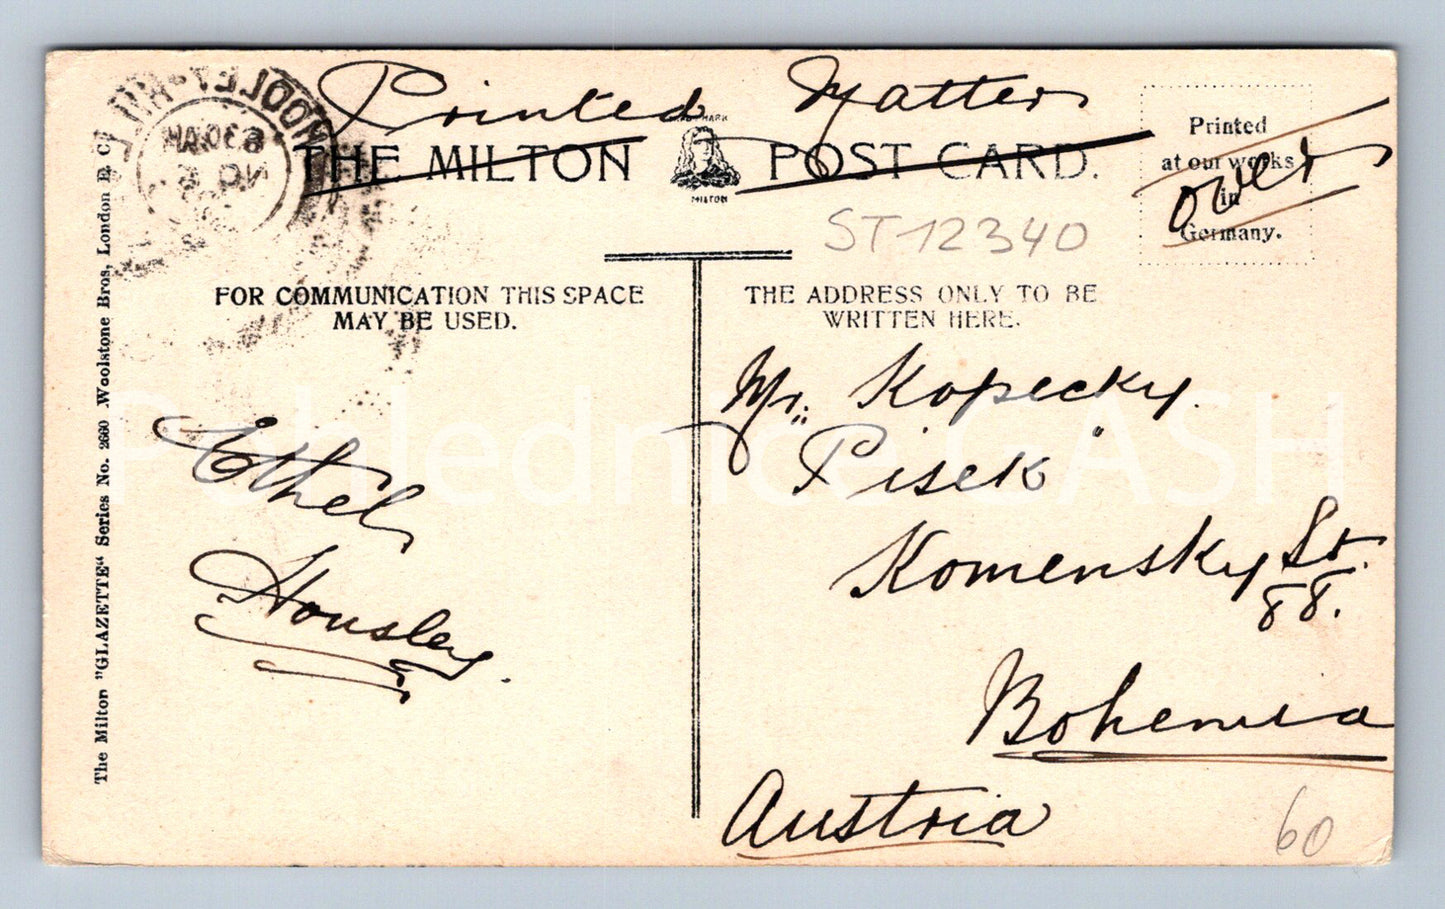 Printed Matter
THE MILTON POST CARD.
TRADE MARK
MILTON
Printed
at our works
in
Germany.
over
ST 12340
FOR COMMUNICATION THIS SPACE
MAY BE USED.
THE ADDRESS ONLY TO BE
WRITTEN HERE.
The Milton "GLAZETTE" Series No. 2660 Woolstone Bros, London E. C.
Ethel
Housley.
Mr. Kopecky.
Pisek
Komensky St.
88.
Bohemia
Austria
60
630AM
NO 5
Pohlednice CASH